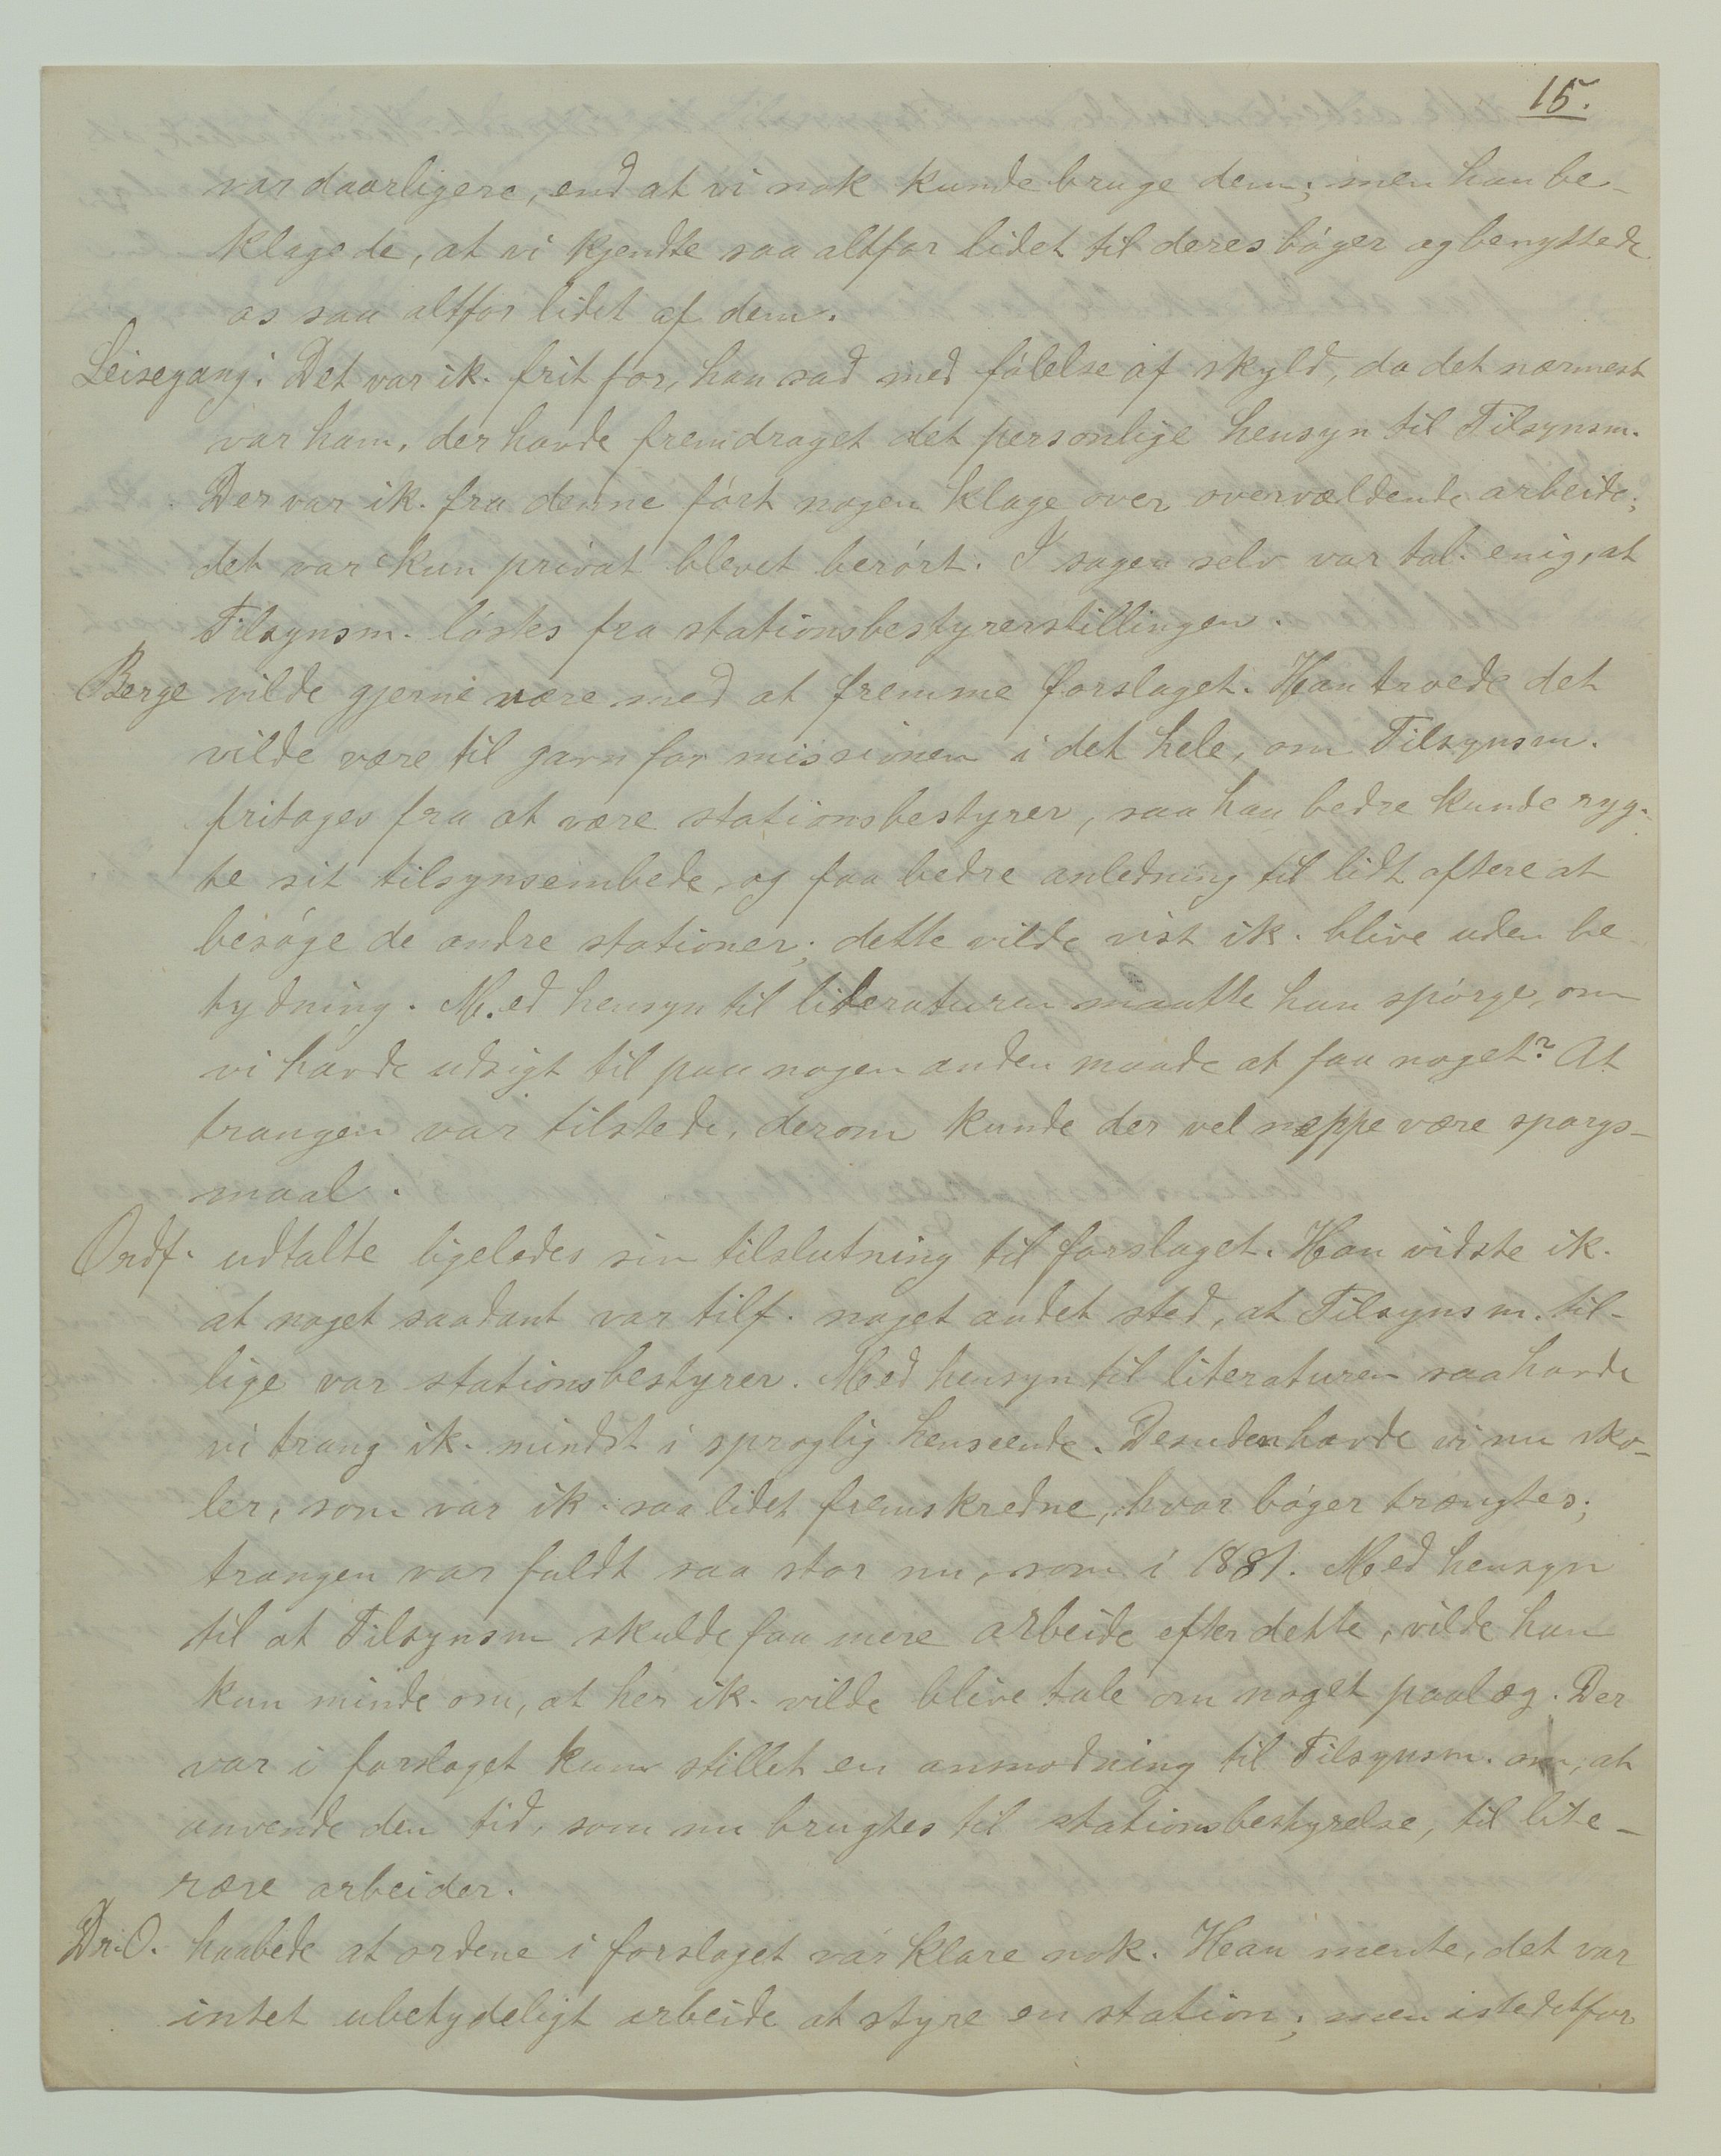 15.
var daarligere, end at vi nok kunde bruge dem; men han be-
klagede, at vi kjendte saa altfor lidet til deres bóger og benyttede
os saa altfor lidet af dem.
Leisegang: Det var ik. frit for, han sad med fólelse af skyld, da det nærmest
var ham, der havde fremdraget det personlige hensyn til Tilsynsm.
Der var ik. fra denne fórt nogen klage over overvældende arbeide;
det var kun privat blevet berórt. I sagen selv var tal. enig, at
Tilsynsm. lóstes fra stationsbestyrerstillingen.
Berge vilde gjerne være med at fremme forslaget. Han troede det
vilde være til gavn for missionen i det hele, om Tilsynsm.
fritages fra at være stationsbestyrer, saa han bedre kunde ryg-
te sit tilsynsembede, og faa bedre anledning til lidt oftere at
besóge de andre stationer; dette vilde vist ik. blive uden be
tydning. Med hensyn til literaturen maatte han spórge, om
vi havde udsigt til paa nogen anden maade at faa noget? At
trangen var tilstede, derom kunde der vel neppe være spørgs-
maal.
Ordf. udtalte ligeledes sin tilslutning til forslaget. Han vidste ik.
at noget saadant var tilf. noget andet sted, at Tilsynsm. til-
lige var stationsbestyrer. Med hensyn til literaturen saa havde
vi trang ik. mindst i sproglig henseende. Desuden havde vi nu sko-
ler, som var ik. saa lidet fremskredne, hvor bóger trængtes;
trangen var fuldt saa stor nu, som i 1881. Med hensyn
til at Tilsynsm skulde faa mere arbeide efter dette, vilde han
kun minde om, at her ik. vilde blive tale om noget paalæg. Der
var i forslaget kun stillet en anmodning til Tilsynsm. om, at
anvende den tid, som nu brugtes til stationsbestyrelse, til lite-
rære arbeider.
Dr. O. haabede at ordene i forslaget var klare nok. Han mente, det var
intet ubetydeligt arbeide at styre en station; men istedetfor